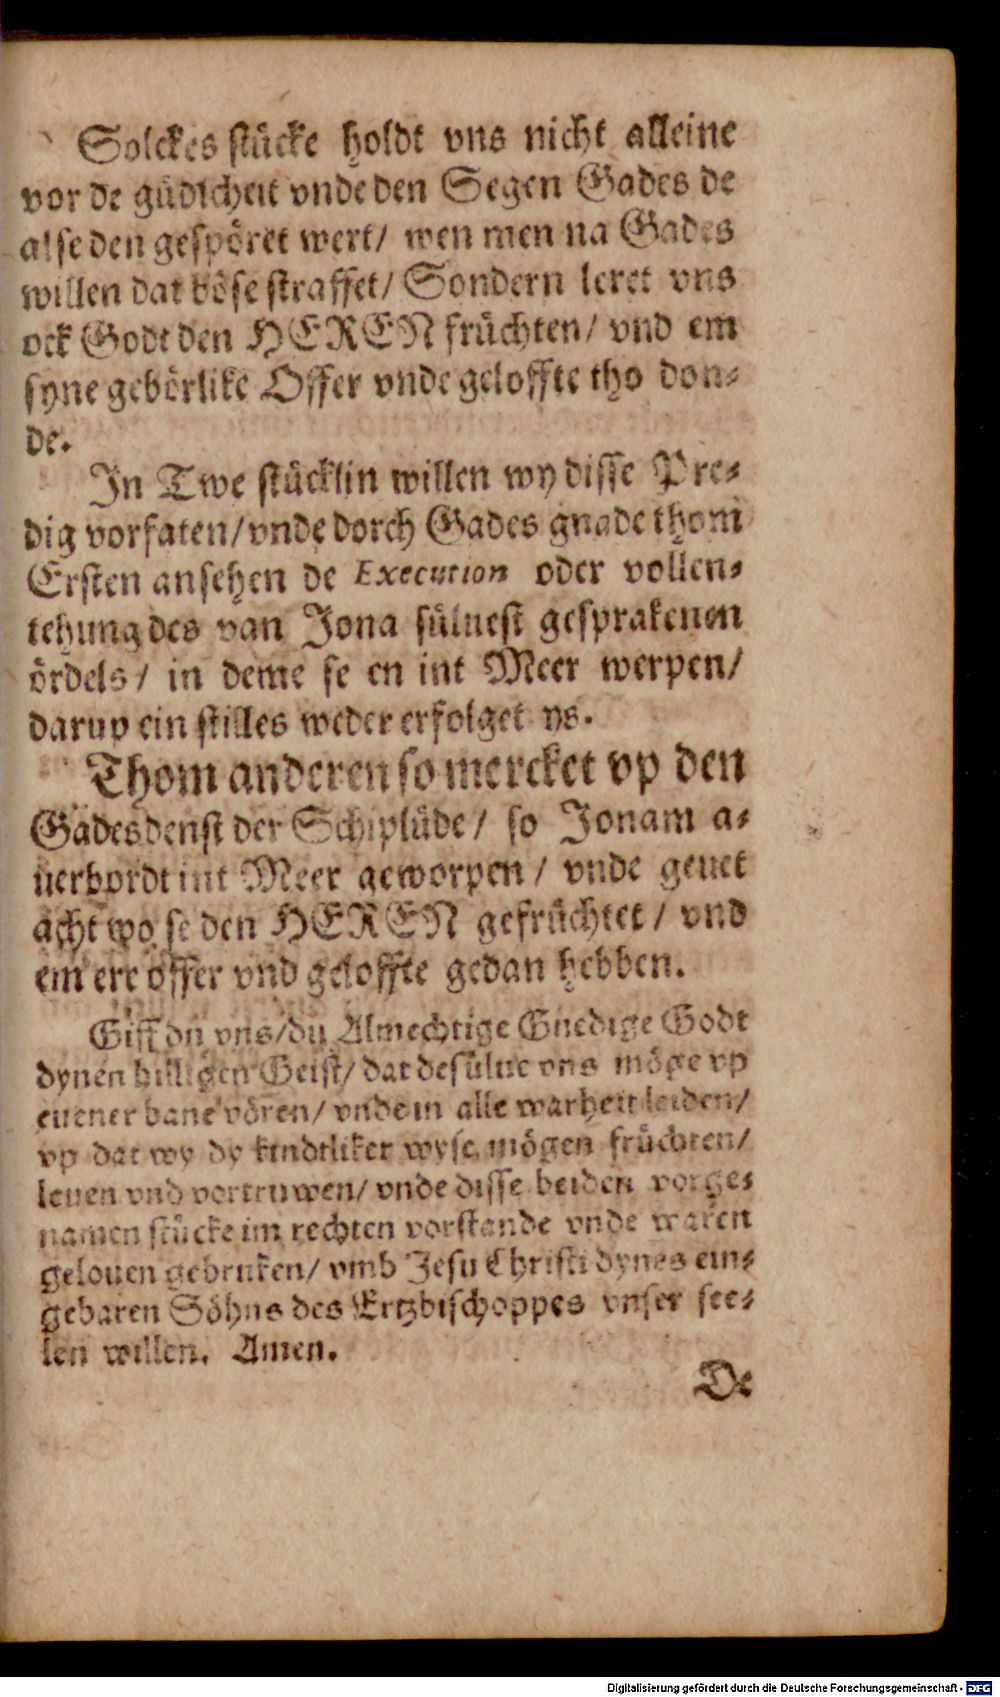 Solckes stücke holdt vns nicht alleine
vor de güdicheit vnde den Segen Gades de
alse den gespöret wert/ wen men na Gades
willen dat böse straffet/ Sondern leret vns
ock Godt den HEREN früchten/ vnd em
syne gebörlike Offer vnde geloffte tho don-
de.
In Twe stücklin willen wy disse Pre-
dig vorfaten/ vnde dorch Gades gnade thom
Ersten ansehen de Execution oder vollen-
tehung des van Jona süluest gesprakenen
ördels/ in deme se en int Meer werpen/
darup ein stilles weder erfolget ys.
Thom anderen so mercket vp den
Gadesdenst der Schiplüde/ so Jonam a-
uerbordt int Meer geworpen/ vnde geuet
acht wo se den HEREN gefrüchtet/ vnd
em ere offer vnd geloffte gedan hebben.
Giff du vns/ du Almechtige Gnedige Godt
dynen hilligen Geist/ dat desülue vns möge vp
euener bane vören/ vnde in alle warheit leiden/
vp dat wy dy kindtliker wyse mögen früchten/
leuen vnd vortruwen/ vnde disse beiden vorge-
namen stücke im rechten vorstande vnde waren
gelouen gebruken/ vmb Jesu Christi dynes ein-
gebaren Söhns des Ertzbischoppes vnser see-
len willen. Amen.
De
Digitalisierung gefördert durch die Deutsche Forschungsgemeinschaft - DFG